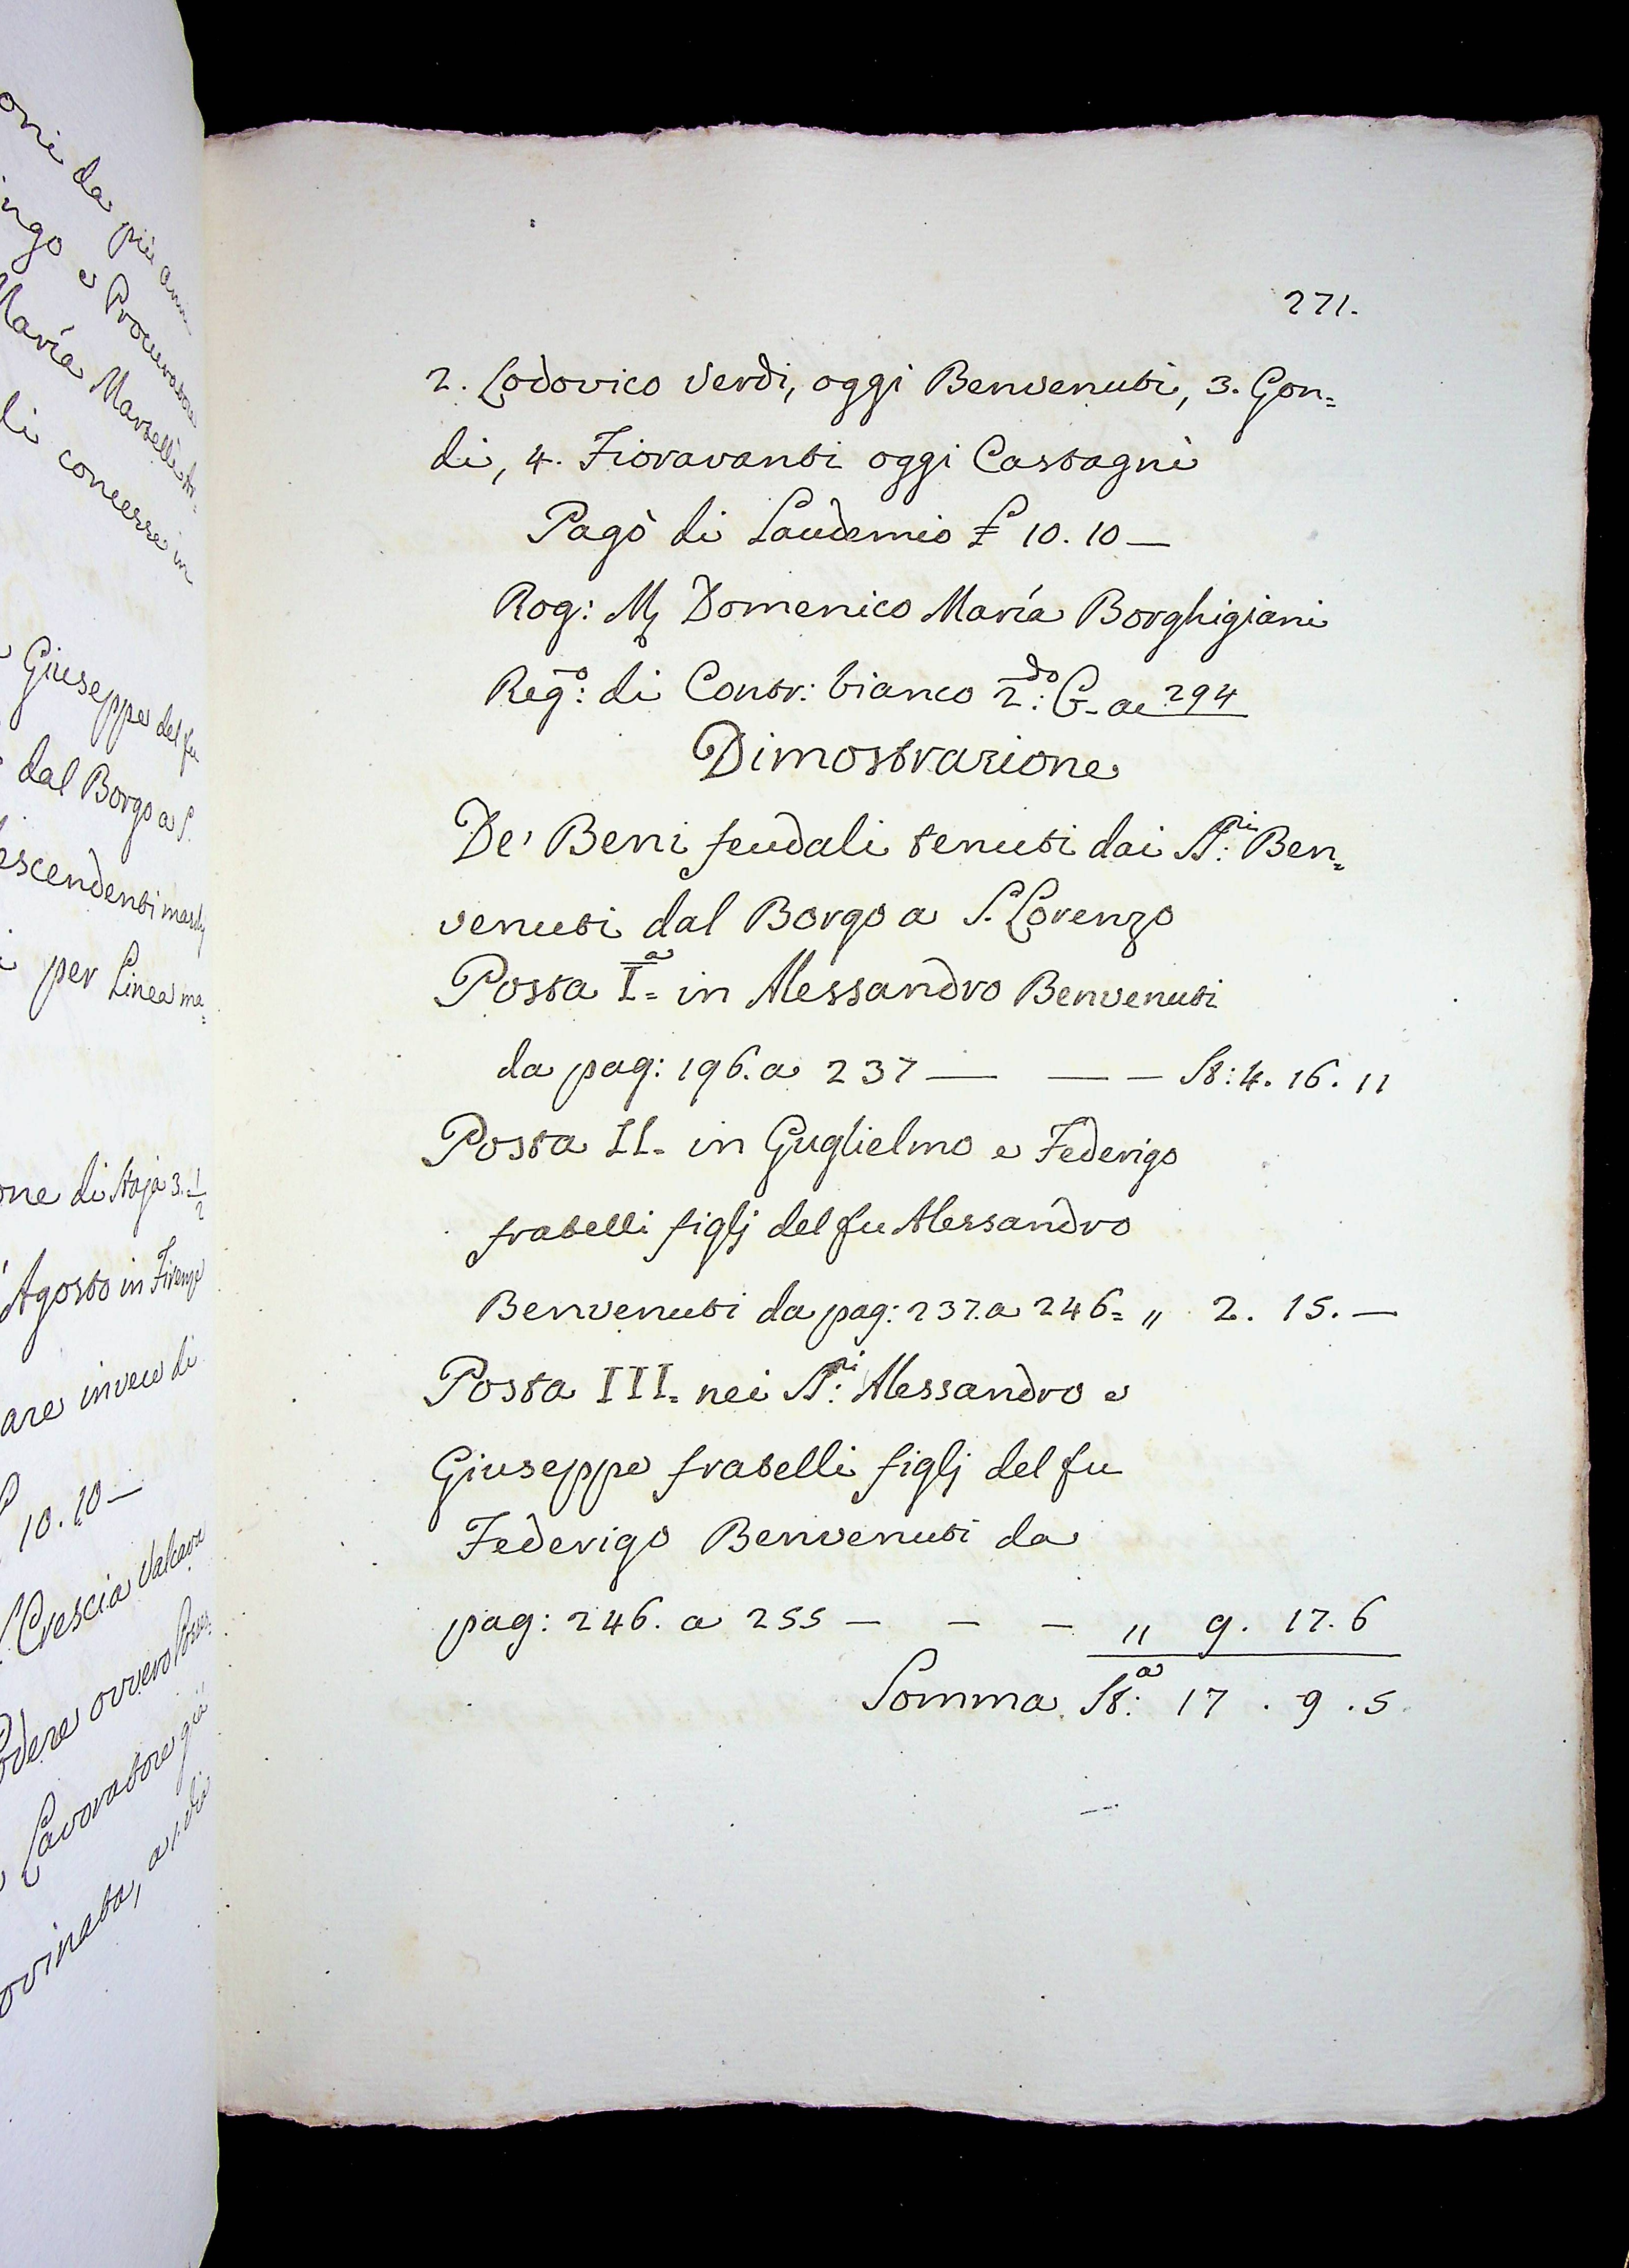 oni da più an
ingo e Procuratore
Maria Marselli
li concesse in
Giuseppe del fu
dal Borgo a S.
escendenti mas
i per Linea ma=
one di Staja 3. 1/2
Agosto in Firenze
are invece di
10. 10 —
Crescia Valcava
odere ovvero
Lavoratore già
ovinata, a 1. di
271.
2. Lodovico Verdi, oggi Benvenuti, 3. Gon=
di, 4. Fioravanti oggi Castagni
Pagò di Laudemio £ 10. 10 —
Rog: M Domenico Maria Borghigiani
Reg:o di Contr: bianco 2:do G- a 294
Dimostrazione
De' Beni feudali tenuti dai SS:ri Ben=
venuti dal Borgo a S. Lorenzo
Posta I=a in Alessandro Benvenuti
da pag: 196. a 237 — — — St: 4. 16. 11
Posta II= in Guglielmo e Federigo
fratelli figlj del fu Alessandro
Benvenuti da pag: 237. a 246= „ 2. 15. —
Posta III= nei SS:ri Alessandro e
Giuseppe fratelli figlj del fu
Federigo Benvenuti da
pag: 246. a 255 — — — „ 9. 17. 6
Somma St:a 17 . 9 . 5